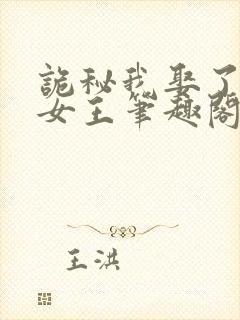 诡秘我娶了
女王笔趣阁
王洪